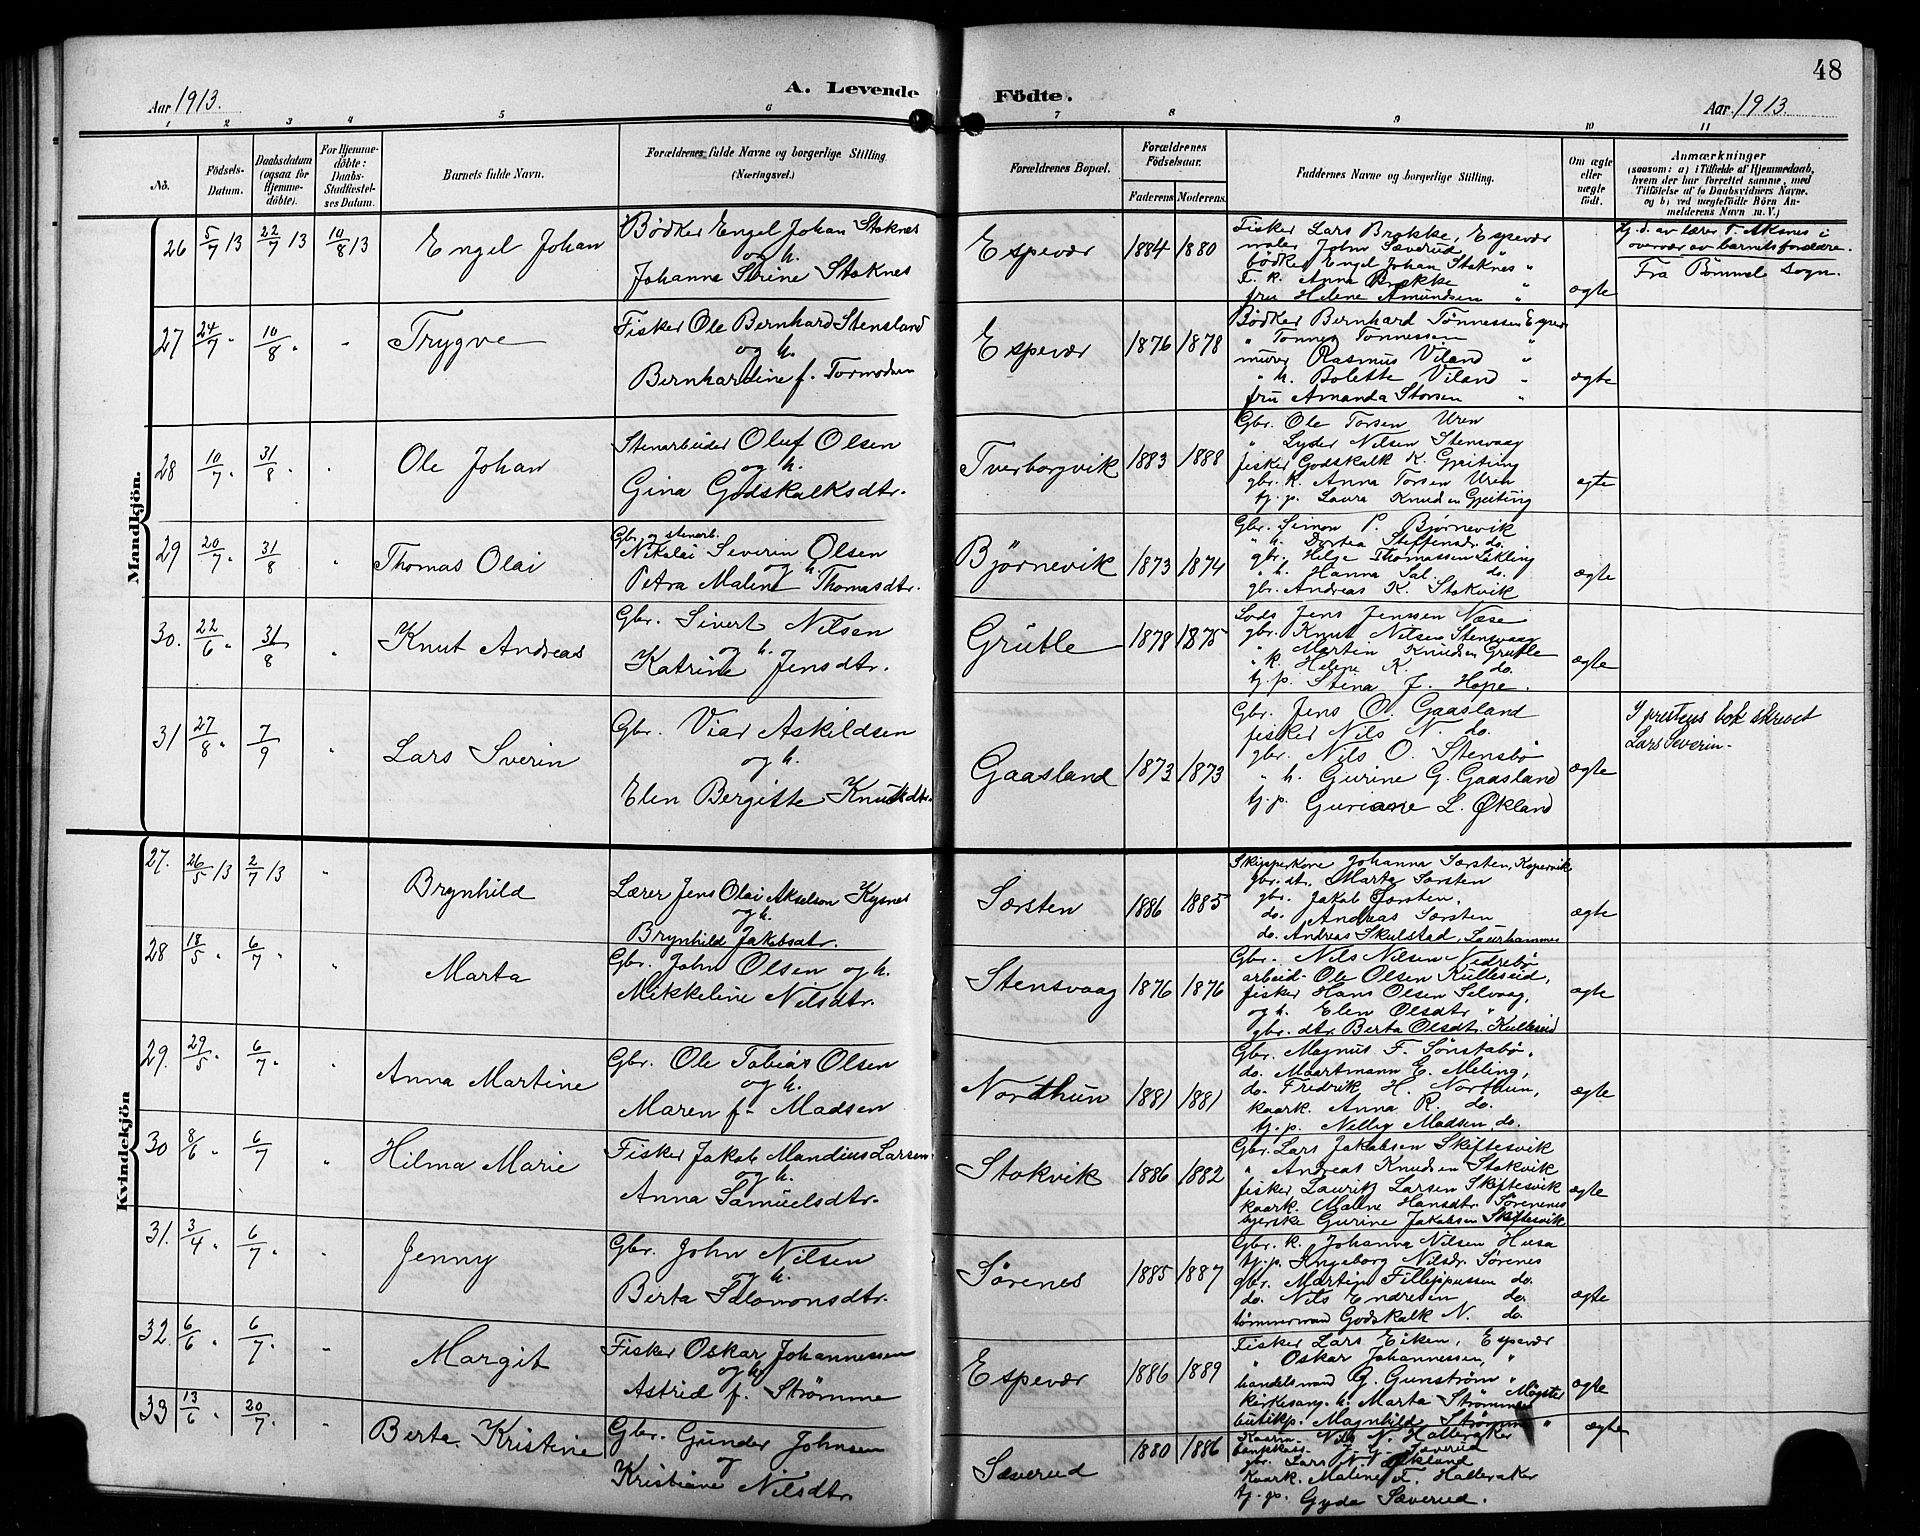 48
A. Levende Födte.
Aar 1913.
Aar 1913.
1 2 3 4 5 6 7 8 9 10 11
No.
Födsels-Datum.
Daabsdatum (ogsaa for Hjemme-döbte).
For Hjemme-döbte: Daabs-Stadfæstel-ses Datum.
Barnets fulde Navn.
Forældrenes fulde Navne og borgerlige Stilling. (Næringsvei.)
Forældrenes Bopæl.
Forældrenes Födselsaar.
Faderens Moderens
Faddernes Navne og borgerlige Stilling.
Om ægte eller uægte födt.
Anmærkninger
(saasom: a) i Tilfælde af Hjemmedaab, hvem der har forrettet samme, med Tilföielse af to Daabsvidners Navne, og b) ved uægtefödte Börn An-melderens Navn m. V.)
Mandkjön.
26 5/7 13 22/7 13 10/8 13 Engel Johan
Bödker Engel Johan Stoknes
og h.
Johanne Serine Stoknes
Espevær 1884 1880
Fisker Lars Brekke, Espevær
maler John Sæverud "
bödker Engel Johan Stoknes "
F. k. Anna Brekke "
fru Helene Amundsen "
ægte
Hj.d. av lærer T. Aksnes i
overvær av barnets forældre.
Fra Bömmel Sogn.
27 24/7 " 10/8 " " Trygve
Fisker Ole Bernhard Stensland
og h.
Bernhardine f. Tormodsen
Espevær 1876 1878
Bödker Bernhard Tönnessen Espev
" Tönnes Tönnessen "
murer Rasmus Viland "
" h. Bolette Viland "
fru Amanda Storsen "
ægte
28 10/7 " 31/8 " " Ole Johan
Stenarbeider Oluf Olsen
og h.
Gina Godskalksdtr.
Tverborgvik 1883 1888
Gbr. Ole Torsen Uren
" Lyder Nilsen Stensvaag
fisker Godskalk K. Gjeitung
gbr. k. Anna Torsen Uren
tj. p. Laura Knudsen Gjeitung
ægte
29 20/7 " 31/8 " Thomas Olai
Gbr. og stenarb.
Nikolai Severin Olsen
og h.
Petra Malene Thomasdtr.
Björnevik 1873 1874
Gbr. Simon P. Bjørnevik
" h. Dortea Steffensdr. do.
gbr. Helge Thomassen Løkling
" h. Hanna Sal. do.
gbr. Andreas K. Stokvik
ægte
30. 22/6 " 31/8 " Knut Andreas
Gbr. Sivert Nilsen
og h.
Katrine Jensdtr.
Grutle 1878 1875
Lods Jens Jenssen Næse
gbr. Knut Nilsen Stensvaag
" Marten Knudsen Grutle
" k. Helene K. do.
tj. p. Stina J. Hope.
ægte
31 27/8 " 7/9 " Lars Sverin
Gbr. Viar Askildsen
og h.
Elen Bergitte Knutsdtr.
Gaasland 1873 1873
Gbr. Jens O. Gaasland
fisker Nils N. do.
gbr. Nils O. Stensbø
" h. Gurine G. Gaasland
tj. p. Guriane L. Økland
ægte
I prestens bok skrevet
Lars Severin.
Kvindekjön
27. 26/5 13 2/7 13 " Brynhild
Lærer Jens Olai Akselson Kysnes
og h.
Brynhild Jakobsdtr.
Særsten 1886 1885
Skipperkone Johanna Særsten, Kopervik
gbr. dt. Marta Særsten
gbr. Jakob Særsten,
do. Andreas Særsten
do. Andreas Skulstad,
ægte
28 18/5 " 6/7 " " Marta
Gbr. John Olsen og h.
Mikkeline Nilsdtr.
Stensvaag 1876 1876
Gbr. Nils Nilsen Nedrebø
arbeid. Ole Olsen Kulleseid,
fisker Hans Olsen Selvaag,
og h. Elen Olsdtr "
gbr. dtr. Berta Olsdtr. Kulleseid
ægte
29. 29/5 " 6/7 " " Anna Martine
Gbr. Ole Tobias Olsen
og h.
Maren f. Madsen
Northun 1881 1881
Gbr. Magnus F. Sønstabø,
do. Maartmann E. Meling,
do. Fredrik H. Northun,
kaark. Anna R. do.
tj. p. Nelly Madsen do.
ægte
30 8/6 " 6/7 " Hilma Marie
Fisker Jakob Mandius Larsen
og h.
Anna Samuelsdtr.
Stokvik 1886 1882
Gbr. Lars Jakobsen Skiftesvik
" Andreas Knudsen Stokvik
fisker Lauritz Larsen Skiftesvik
kaark. Malene Hansdtr. Sörenes
syerske Gurine Jakobsen Skiftesvik
ægte
31. 3/4 " 6/7 " Jenny
Gbr. John Nilsen
og h.
Berta Salomonsdtr.
Sørenes 1885 1887
Gbr. k. Johanna Nilsen Husa
tj. p. Ingeborg Nilsdr. Sørenes
gbr. Martin Fillippussen do.
do. Nils Endresen do.
tömmermand Godskalk N. do.
ægte
32. 6/6 " 6/7 " Margit
Fisker Oskar Johannessen
og h.
Astrid f. Strömme
Espevær 1886 1889
Fisker Lars Eiken, Espevær
" Oskar Johannessen, "
handelsmand G. Gunström "
kirkesang. h. Marta Strömme Møgster
butikp. Magnhild Strömme "
ægte
33 13/6 " 20/7 " Berta Kristine
Gbr. Gunder Johnsen
og
Kristiane Nilsdtr.
Sæverud 1880 1886
Kaarm. Nils N. Halleraker
J. G. Sæverud
gbr. Lars N. Økland
Kaark. Malene T. Halleraker
tj. p. Gyda Sæverud.
ægte